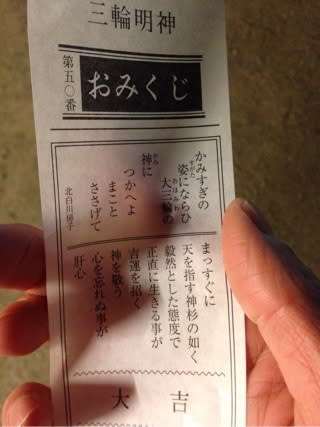 三輪明神
おみくじ
第五〇番
かみすぎの
姿にならひ
すがた
大三輪の
おほみわ
神に
かみ
つかへよ
まこと
ささげて
北白川房子
まっすぐに
天を指す神杉の如く
毅然とした態度で
正直に生きる事が
吉運を招く
神を敬う
心を忘れぬ事が
肝心
大吉